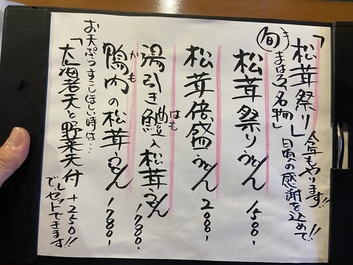 「松茸祭り」今年もやります!!
旬 きまぐれ名物 日頃の感謝を込めて!!
松茸祭りうどん 1500-
松茸倍盛うどん 2000-
湯引き鱧入松茸うどん 1700-
はも
鴨肉の松茸うどん 1700-
かも
お天ぷらすこしほしい時は…
「大海老天と野菜天付 +250!!
でセットできます